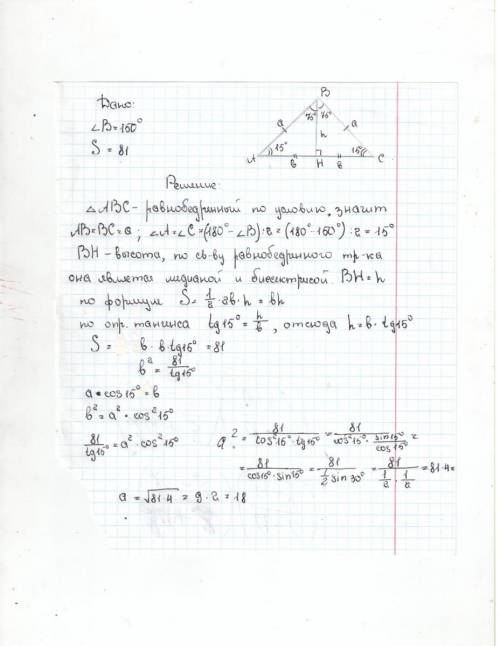 Дано:
∠B=150°
S = 81
B
75° 75°
a a
h
15° 15°
A в H в C
Решение:
△ABC - равнобедренный по условию, значит
AB=BC=a; ∠A=∠C=(180°-∠B):2=(180°-150°):2=15°
BH - высота, по св-ву равнобедренного тр-ка
она является медианой и биссектрисой. BH=h
по формуле S=1/2·2в·h=вh
по опр. тангенса tg15°=h/в, отсюда h=в·tg15°
S = в·в·tg15°=81
в²=81/tg15°
a·cos15°=в
в²=a²·cos²15°
81/tg15°=a²·cos²15° a²=81/(cos²15°·tg15°)=81/(cos²15°·sin15°/cos15°)=
=81/(cos15°·sin15°)=81/(1/2 sin30°)=81/(1/2·1/2)=81·4=
a=√81·4=9·2=18